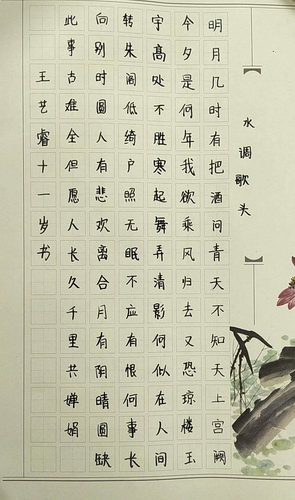 水调歌头
明月几时有把酒问青天不知天上宫阙
今夕是何年我欲乘风归去又恐琼楼玉
宇高处不胜寒起舞弄清影何似在人间
转朱阁低绮户照无眠不应有恨何事长
向别时圆人有悲欢离合月有阴晴圆缺
此事古难全但愿人长久千里共婵娟
王艺睿十一岁书